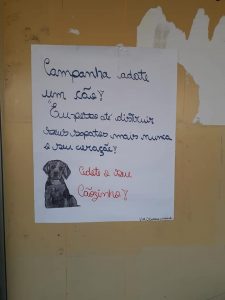 Campanha adote
um cão!
Eu posso até distruir
seus sapatos, mais nunca
o seu coração!
Adote o seu
Cãozinho!